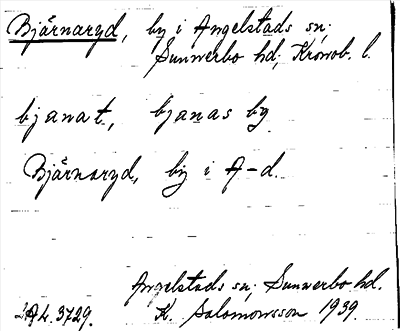 Bjärnaryd, by i Angelstads sn.
Sunnerbo hd, Kronob. l.
bjanat, bjanas by
Bjärnaryd, by i A-d.
Angelstads sn. Sunnerbo hd.
LAL.3729. K. Salomonsson 1939.